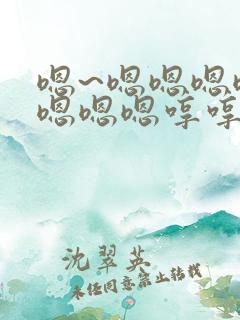 嗯~嗯嗯嗯
嗯嗯嗯哼哼
沈翠英
未经同意禁止转载